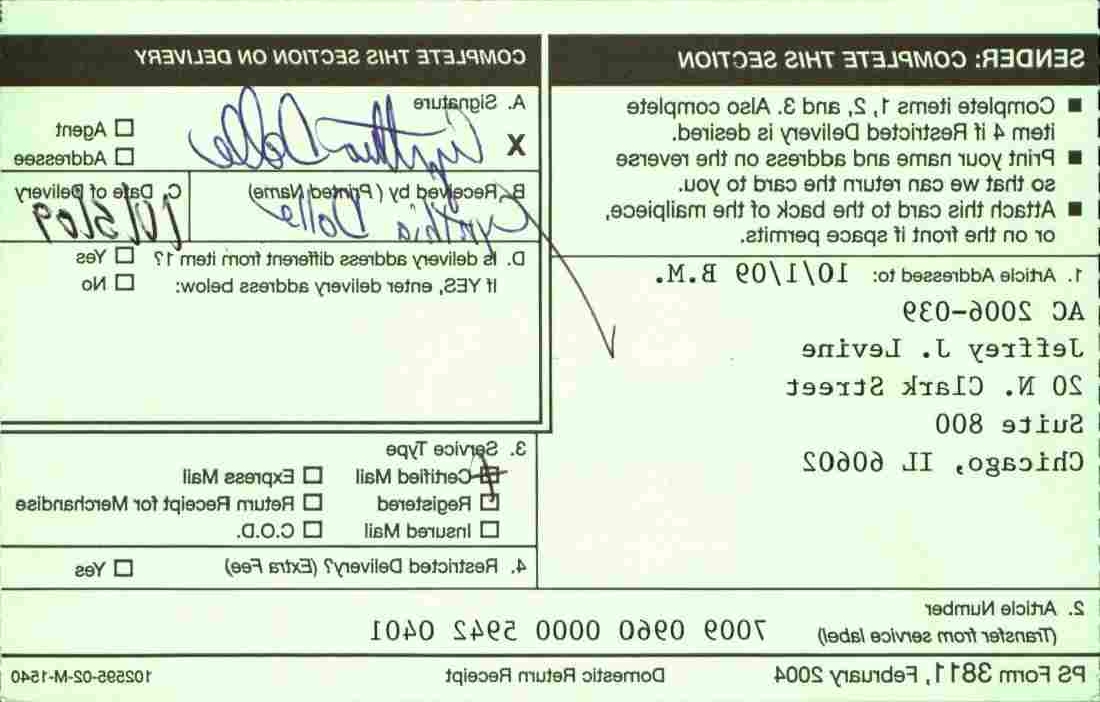 SENDER: COMPLETE THIS SECTION
■ Complete items 1, 2, and 3. Also complete
item 4 if Restricted Delivery is desired.
■ Print your name and address on the reverse
so that we can return the card to you.
■ Attach this card to the back of the mailpiece,
or on the front if space permits.
1. Article Addressed to: 10/1/09 B.M.
AC 2006-039
Jeffrey J. Levine
20 N. Clark Street
Suite 800
Chicago, IL 60602
COMPLETE THIS SECTION ON DELIVERY
A. Signature
X Cynthia Dolle
☐ Agent
☐ Addressee
B. Received by (Printed Name)
Cynthia Dolle
C. Date of Delivery
D. Is delivery address different from item 1? ☐ Yes
If YES, enter delivery address below: ☐ No
3. Service Type
☒ Certified Mail ☐ Express Mail
☐ Registered ☐ Return Receipt for Merchandise
☐ Insured Mail ☐ C.O.D.
4. Restricted Delivery? (Extra Fee) ☐ Yes
2. Article Number
(Transfer from service label)
7009 0960 0000 5942 0401
PS Form 3811, February 2004 Domestic Return Receipt 102595-02-M-1540